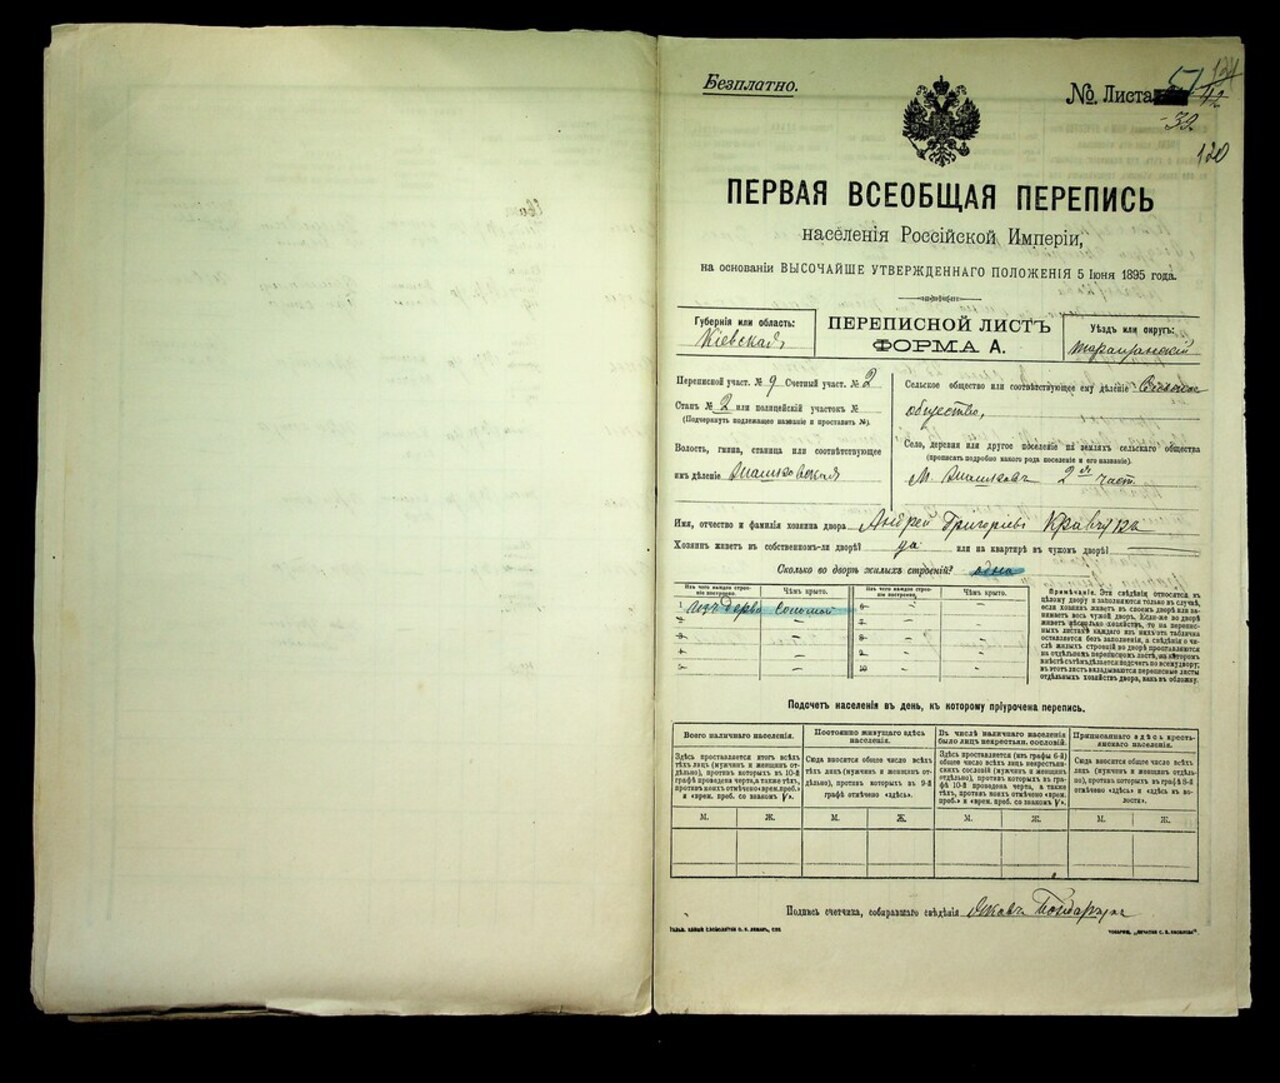 Безплатно.
№ Листа 51
42
32
120
ПЕРВАЯ ВСЕОБЩАЯ ПЕРЕПИСЬ
населенія Россійской Имперіи,
на основаніи ВЫСОЧАЙШЕ УТВЕРЖДЕННАГО ПОЛОЖЕНІЯ 5 Іюня 1895 года.
Губернія или область:
Кіевская
ПЕРЕПИСНОЙ ЛИСТЪ
ФОРМА А.
Уѣздъ или округъ:
Таращанскій
Переписной участ. № 9 Счетный участ. № 2
Станъ № 2 или полицейскій участокъ №
(Подчеркнуть подлежащее названіе и проставить №).
Волость, гмина, станица или соотвѣтствующее
имъ дѣленіе
Сельское общество или соотвѣтствующее ему дѣленіе Сельское
общество,
Село, деревня или другое поселеніе на земляхъ сельскаго общества
(прописать подробно какого рода поселеніе и его названіе).
М. 2 част.
Имя, отчество и фамилія хозяина двора Андрей Григорьевъ
Хозяинъ живетъ въ собственномъ-ли дворѣ? да или на квартирѣ въ чужомъ дворѣ?
Сколько во дворѣ жилыхъ строеній? одна
Изъ чего каждое строеніе построено.
Чѣмъ крыто.
Изъ чего каждое строеніе построено.
Чѣмъ крыто.
1 изъ дерева Соломой 6
2 7
3 8
4 9
5 10
Примѣчаніе. Эти свѣдѣнія относятся къ
цѣлому двору и заполняются только въ случаѣ,
если хозяинъ живетъ въ своемъ дворѣ или занимаетъ
весь чужой дворъ. Если-же во дворѣ
живетъ нѣсколько хозяйствъ, то на переписныхъ
листахъ каждаго изъ нихъ эта табличка
оставляется безъ заполненія, а свѣдѣнія о числѣ
жилыхъ строеній во дворѣ проставляются
на отдѣльномъ переписномъ листѣ, на которомъ
вмѣстѣ съ тѣмъ дѣлается подсчетъ по всему двору;
въ этотъ листъ вкладываются переписные листы
отдѣльныхъ хозяйствъ двора, какъ въ обложку.
Подсчетъ населенія въ день, къ которому пріурочена перепись.
Всего наличнаго населенія.
Здѣсь проставляется итогъ всѣхъ
тѣхъ лицъ (мужчинъ и женщинъ отдѣльно),
противъ которыхъ въ 10-й
графѣ проведена черта, а также тѣхъ,
противъ коихъ отмѣчено «врем. преб.»
и «врем. преб. со знакомъ V».
Постоянно живущаго здѣсь
населенія.
Сюда вносится общее число всѣхъ
тѣхъ лицъ (мужчинъ и женщинъ отдѣльно),
противъ которыхъ въ 9-й
графѣ отмѣчено «здѣсь».
Въ числѣ наличнаго населенія
было лицъ некрестьян. сословій.
Здѣсь проставляется (изъ графы 6-й)
общее число всѣхъ лицъ некрестьянскихъ
сословій (мужчинъ и женщинъ
отдѣльно), противъ которыхъ въ графѣ
10-й проведена черта, а также
тѣхъ, противъ коихъ отмѣчено «врем.
преб.» и «врем. преб. со знакомъ V».
Приписаннаго здѣсь крестьянскаго
населенія.
Сюда вносится общее число всѣхъ
лицъ (мужчинъ и женщинъ отдѣльно),
противъ коихъ въ графѣ 8-й
отмѣчено «здѣсь» и «здѣсь въ волости».
М. Ж. М. Ж. М. Ж. М. Ж.
Подпись счетчика, собиравшаго свѣдѣнія Яковъ